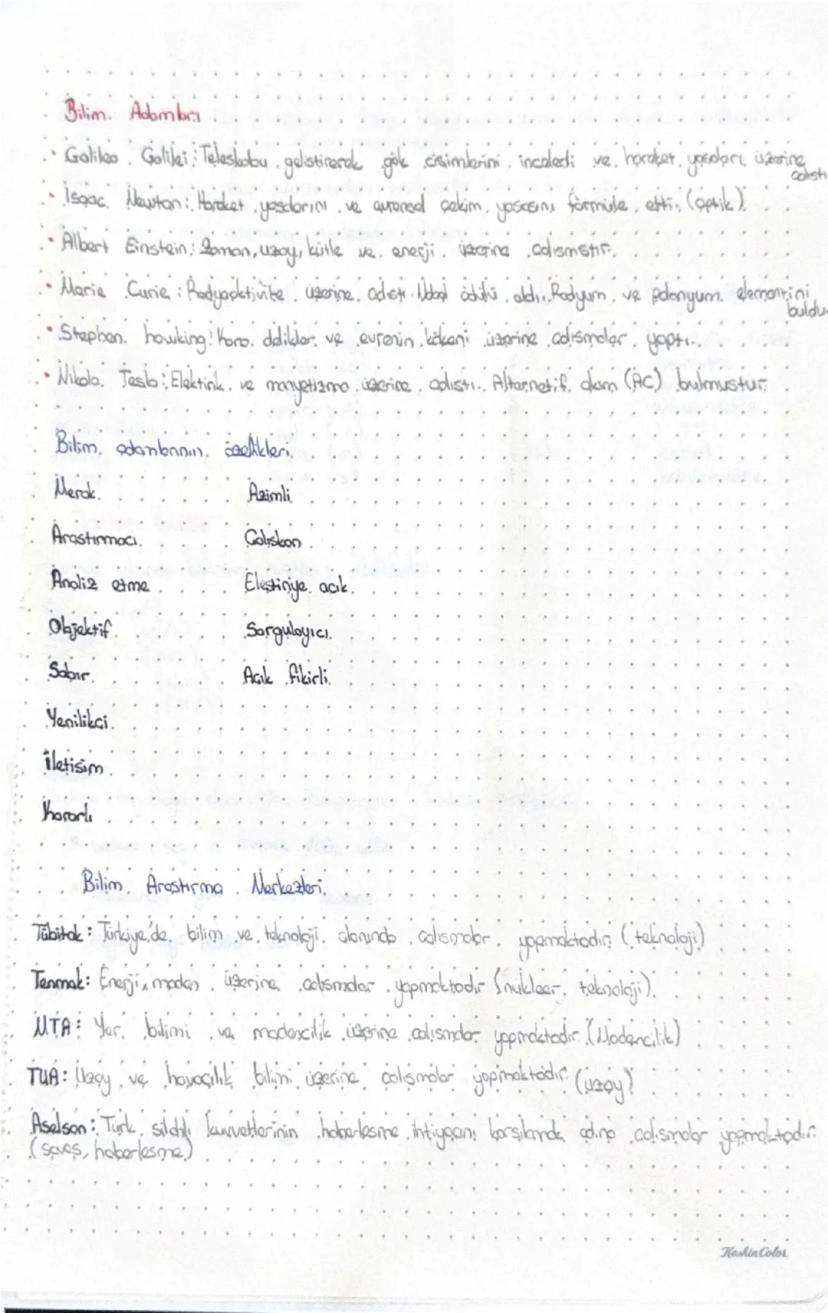 Bilim Adamları
• Galileo Galilei: Teleskobu geliştirerek gök cisimlerini inceledi ve hareket yasaları üzerine çalıştı
• İsaac Newton: Hareket yasalarını ve evrensel çekim yasasını formüle etti. (optik)
• Albert Einstein: Zaman, uzay, kütle ve enerji üzerine çalışmıştır.
• Marie Curie: Radyoaktivite üzerine çalıştı. Nobel ödülü aldı. Radyum ve polonyum elementini buldu
• Stephan howking: Kara delikler ve evrenin kökeni üzerine çalışmalar yaptı.
• Nikola Tesla: Elektirik ve manyetizma üzerine çalıştı. Alternatif akım (AC) bulmuştur.
Bilim adamlarının özellikleri
Merak Azimli
Araştırmacı Çalışkan
Analiz etme Eleştiriye açık
Objektif Sorgulayıcı
Sabır Açık fikirli
Yenilikçi
İletişim
Kararlı
Bilim Araştırma Merkezleri
Tübitak: Türkiye'de bilim ve teknoloji alanında çalışmalar yapmaktadır. (teknoloji)
Tenmak: Enerji, maden üzerine çalışmalar yapmaktadır (nükleer teknoloji).
MTA: Yer bilimi ve madencilik üzerine çalışmalar yapmaktadır. (Madencilik)
TUA: Uzay ve havacılık bilimi üzerine çalışmalar yapmaktadır. (uzay)
Aselsan: Türk silahlı kuvvetlerinin haberleşme ihtiyacını karşılamak adına çalışmalar yapmaktadır.
(savaş, haberleşme)
KeskinColor